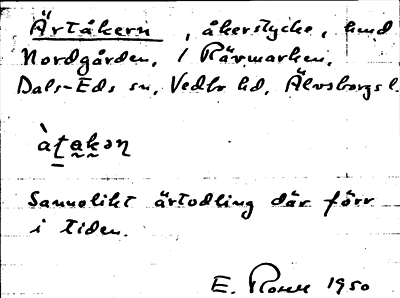 Ärtåkern, åkerstycke, hmd
Nordgården, i Rävmarken,
Dals-Eds sn, Vedbo hd, Älvsborgs l.
àṯa̰kəɳ
Sannolikt ärtodling där förr
i tiden.
E. 1950